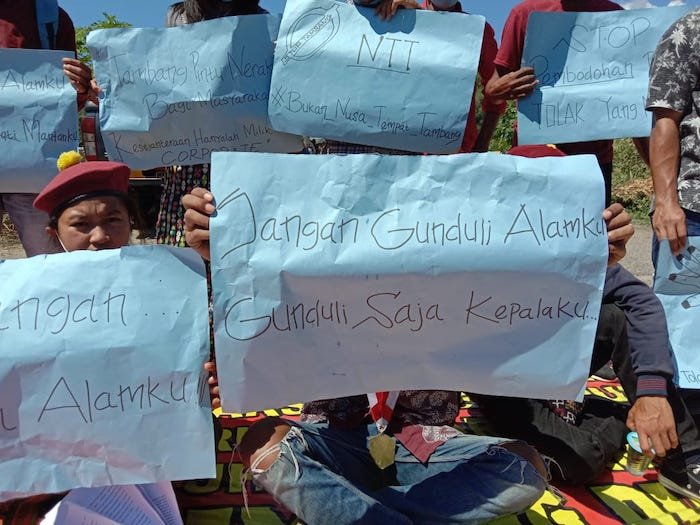 Alamku
Tambang Pintu Nerak
Bagi Masyaraka
Kesejahteraan Hanyalah Milik
CORPORATE
NTT
#Bukan_Nusa_Tempat_Tambang
STOP
Pembodohan
TOLAK Yang
Jangan Gunduli Alamku
Gunduli Saja Kepalaku...
angan...
Alamku